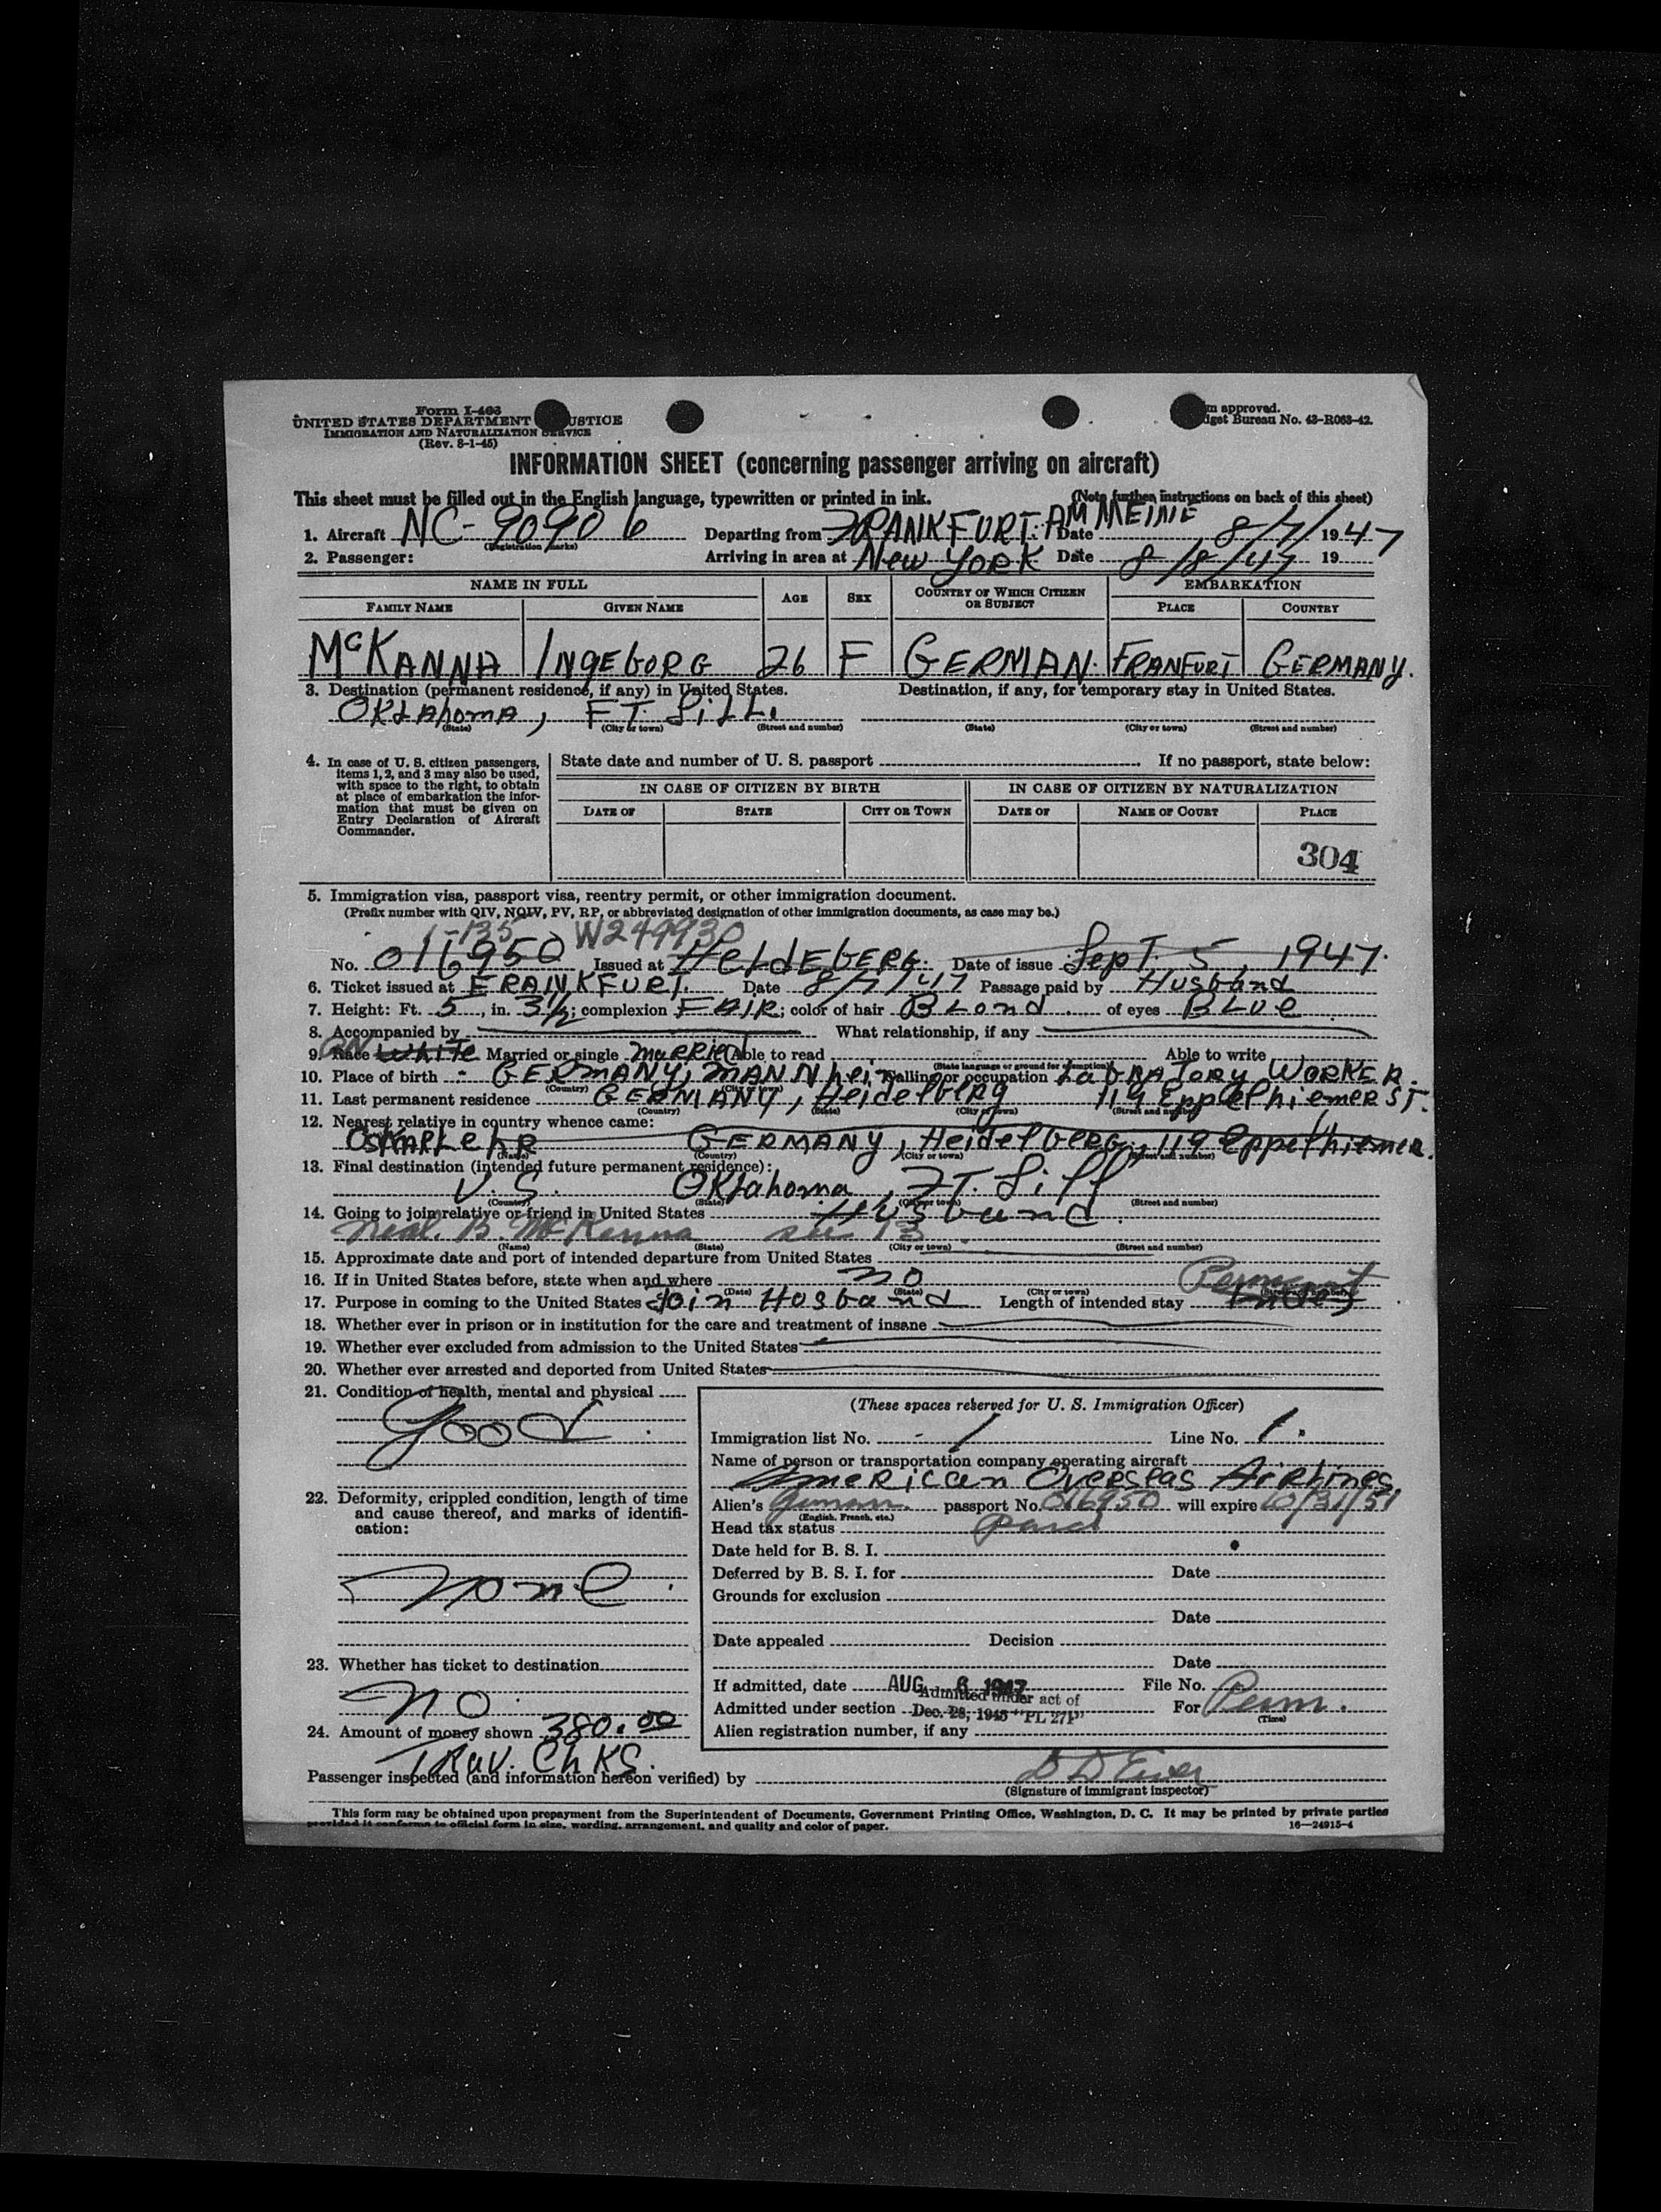 Form I-466
UNITED STATES DEPARTMENT JUSTICE
IMMIGRATION AND NATURALIZATION SERVICE
(Rev. 8-1-45)
m approved.
dget Bureau No. 43-R063-42.
INFORMATION SHEET (concerning passenger arriving on aircraft)
This sheet must be filled out in the English language, typewritten or printed in ink. (Note further instructions on back of this sheet)
1. Aircraft NC-90906 (Registration marks) Departing from FRANKFURT. AM MEINE Date 8/7/ 1947
2. Passenger: Arriving in area at New YORK Date 8/8/47 19
NAME IN FULL AGE SEX COUNTRY OF WHICH CITIZEN OR SUBJECT EMBARKATION
FAMILY NAME GIVEN NAME PLACE COUNTRY
McKANNA INGEBORG 26 F GERMAN. FRANFURT GERMANY.
3. Destination (permanent residence, if any) in United States. Destination, if any, for temporary stay in United States.
OKLAHOMA, FT. SILL.
(State) (City or town) (Street and number) (State) (City or town) (Street and number)
4. In case of U. S. citizen passengers, items 1, 2, and 3 may also be used, with space to the right, to obtain at place of embarkation the information that must be given on Entry Declaration of Aircraft Commander.
State date and number of U. S. passport If no passport, state below:
IN CASE OF CITIZEN BY BIRTH IN CASE OF CITIZEN BY NATURALIZATION
DATE OF STATE CITY OR TOWN DATE OF NAME OF COURT PLACE
304
5. Immigration visa, passport visa, reentry permit, or other immigration document.
(Prefix number with QIV, NQIV, PV, RP, or abbreviated designation of other immigration documents, as case may be.)
1-135 W249930
No. 016950 Issued at HeldEbERG. Date of issue Sept. 5, 1947.
6. Ticket issued at FRANKFURT. Date 8/7/47 Passage paid by Husband
7. Height: Ft. 5, in. 3 1/2; complexion FAIR; color of hair BLond of eyes BLUe.
8. Accompanied by What relationship, if any
9. Race White Married or single married Able to read Able to write
(State language or ground for exemption)
10. Place of birth GERMANY, MANNheim Calling or occupation LabRATORY WORKER.
(Country) (City or town)
11. Last permanent residence GERMANY, Heidelberg 119 Eppelhiemer ST.
(Country) (State) (City or town) (Street and number)
12. Nearest relative in country whence came:
OSKAR LeHR GERMANY, Heidelberg, 119 Eppelhiemer.
(Name) (Country) (City or town) (Street and number)
13. Final destination (intended future permanent residence):
U.S. Oklahoma, FT. Sill
(Country) (State) (City or town) (Street and number)
14. Going to join relative or friend in United States Husband.
Neal. B. McKenna see 13
(Name) (State) (City or town) (Street and number)
15. Approximate date and port of intended departure from United States
16. If in United States before, state when and where no
(Date) (State) (City or town) (Street and number)
17. Purpose in coming to the United States Join Husband Length of intended stay Permanent
18. Whether ever in prison or in institution for the care and treatment of insane
19. Whether ever excluded from admission to the United States
20. Whether ever arrested and deported from United States
21. Condition of health, mental and physical
Good.
22. Deformity, crippled condition, length of time and cause thereof, and marks of identification:
None.
23. Whether has ticket to destination
NO.
24. Amount of money shown 380.00
TRAV. ChKS.
(These spaces reserved for U. S. Immigration Officer)
Immigration list No. 1 Line No. 1.
Name of person or transportation company operating aircraft
American Overseas Airlines
Alien's German passport No. 016950 will expire 12/31/51
(English, French, etc.)
Head tax status Paid
Date held for B. S. I.
Deferred by B. S. I. for Date
Grounds for exclusion
Date
Date appealed Decision
Date
If admitted, date AUG 8 1947 File No.
Admitted under section Admitted under act of Dec. 28, 1945 "PL 271" For Perm.
(Time)
Alien registration number, if any
Passenger inspected (and information hereon verified) by
(Signature of immigrant inspector)
This form may be obtained upon prepayment from the Superintendent of Documents, Government Printing Office, Washington, D. C. It may be printed by private parties
provided it conforms to official form in size, wording, arrangement, and quality and color of paper. 16—24915-4